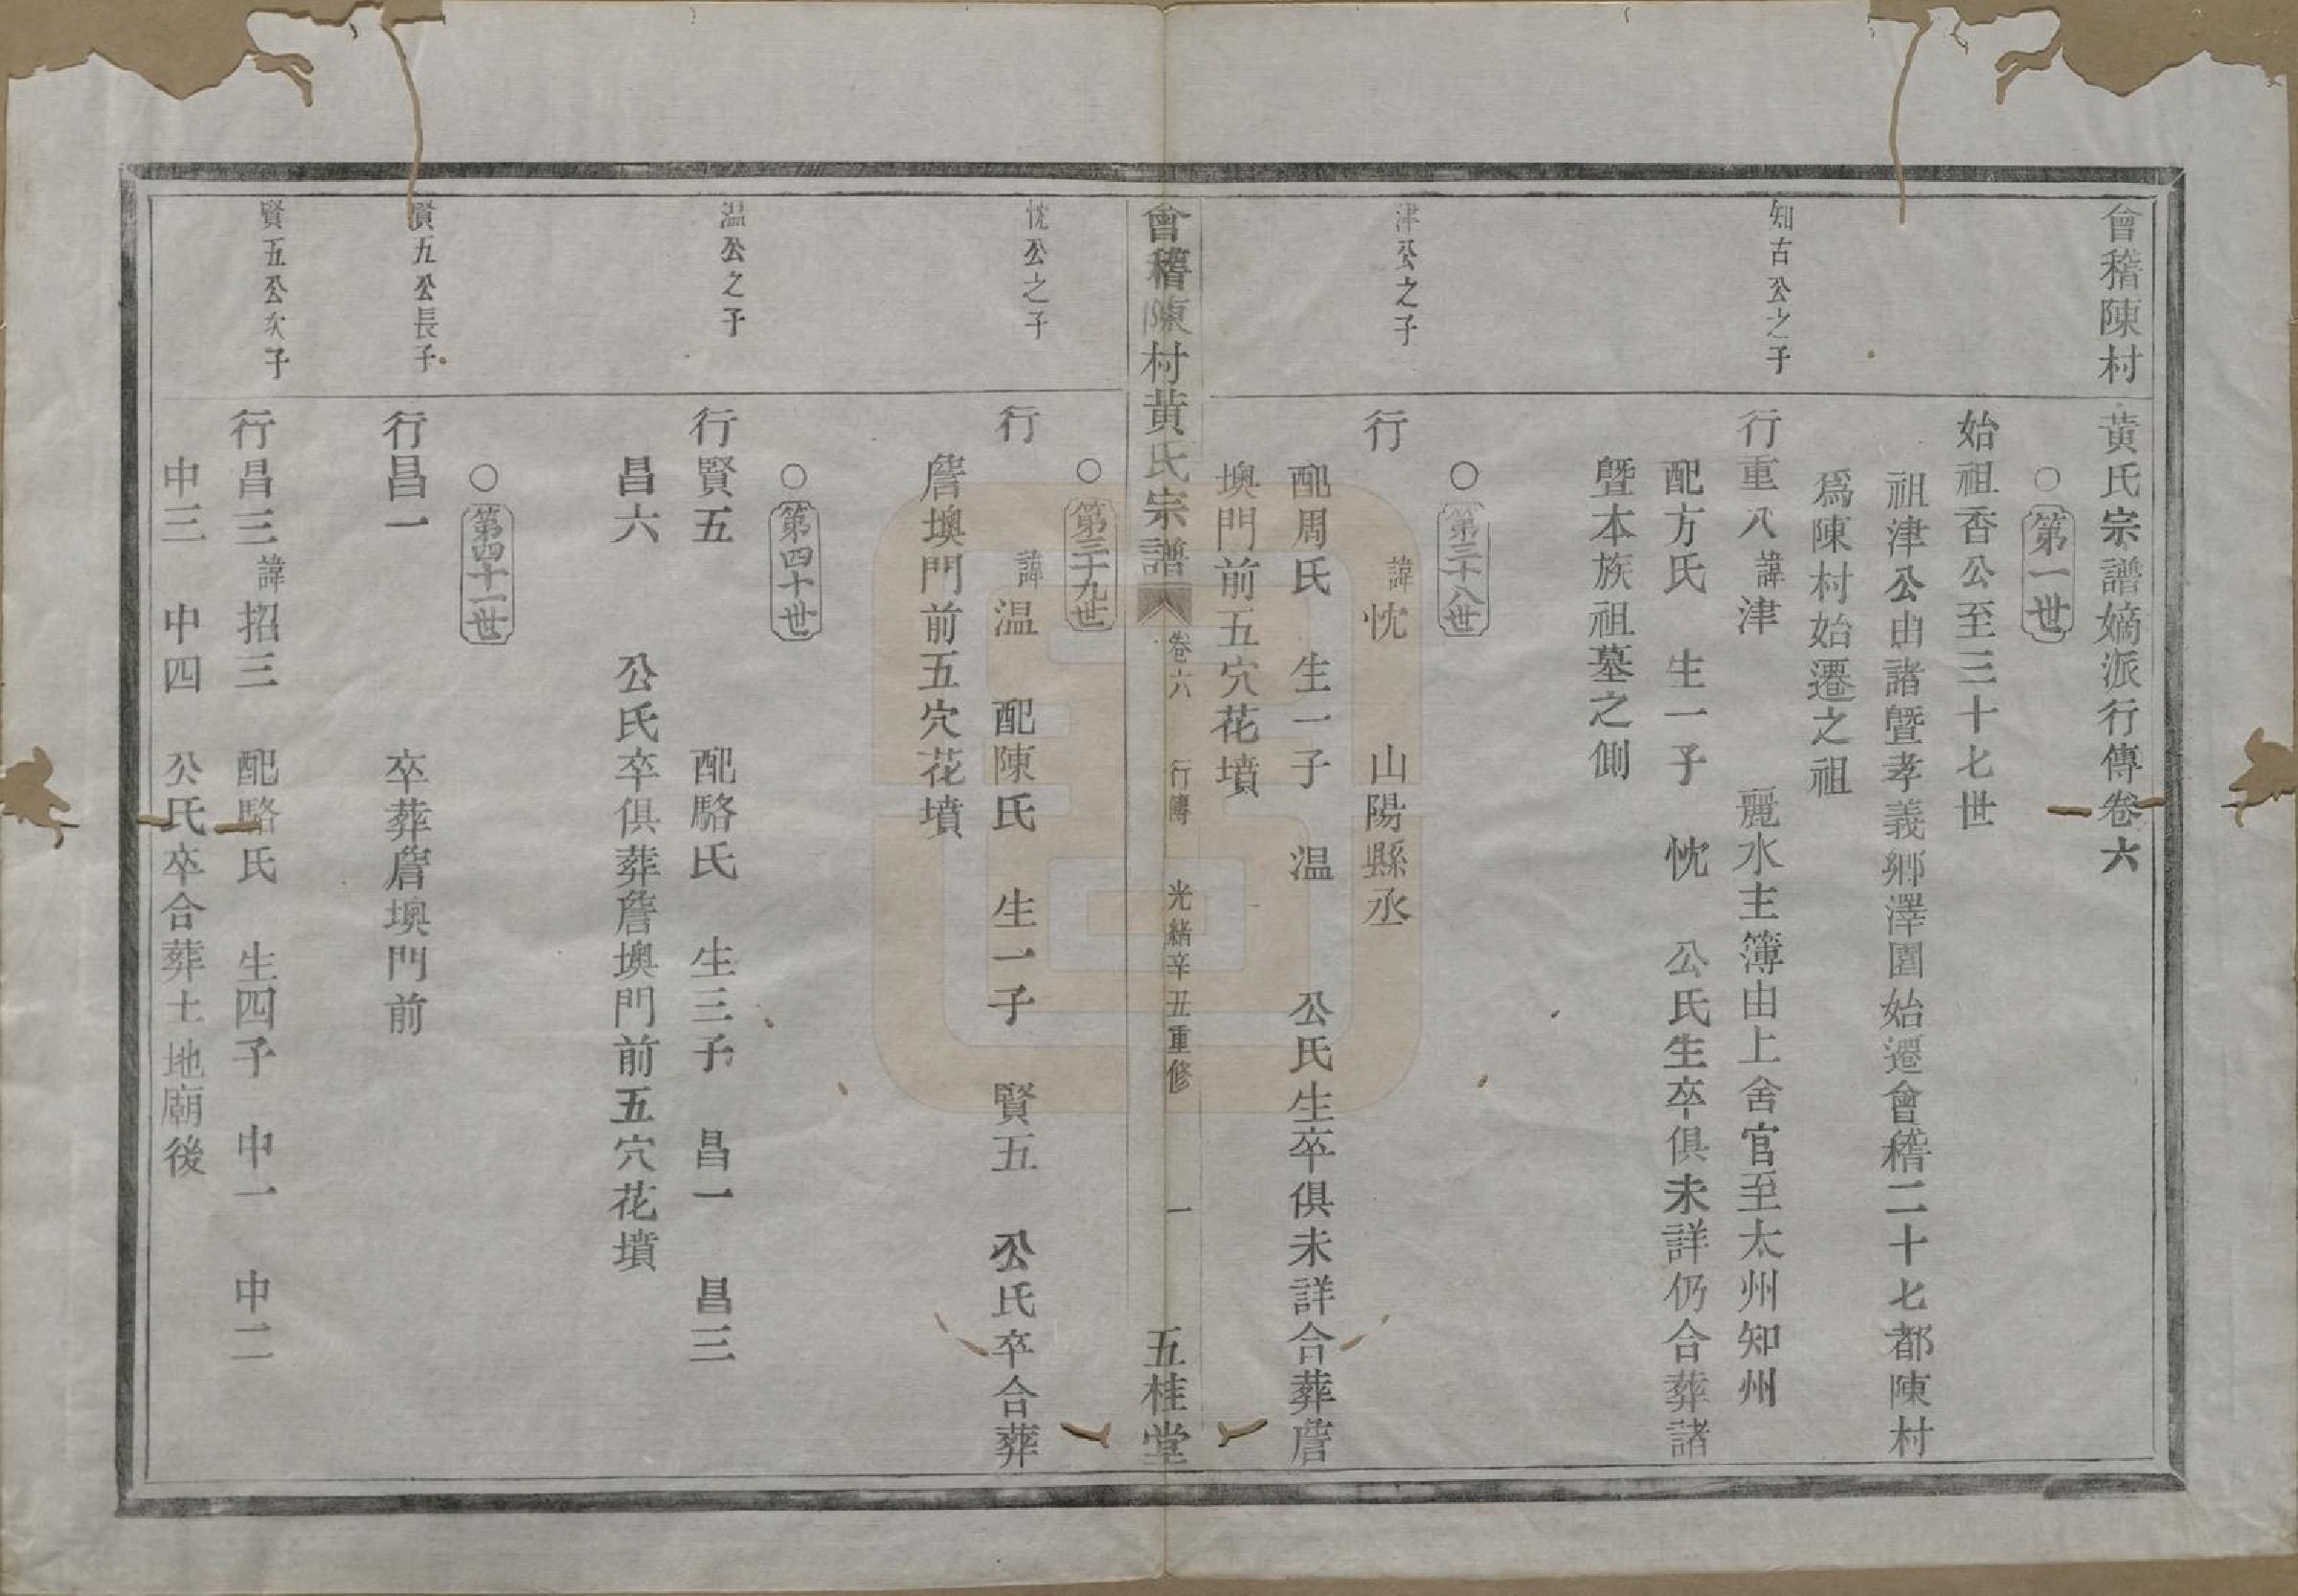 會稽陳村黃氏宗譜嫡派行傳卷六
○第一世
始祖香公至三十七世
祖津公由諸曁孝義鄉澤園始遷會稽二十七都陳村
爲陳村始遷之祖
知古公之子
行重八諱津 麗水主簿由上舍官至太州知州
配方氏 生一子 忱 公氏生卒俱未詳仍合葬諸
曁本族祖墓之側
○第三十八世
津公之子
行 諱忱 山陽縣丞
配周氏 生一子 温 公氏生卒俱未詳合葬詹
墺門前五穴花墳
會稽陳村黃氏宗譜 卷六 行傳 光緒辛丑重修 一 五桂堂
○第三十九世
忱公之子
行 諱温 配陳氏 生一子 賢五 公氏卒合葬
詹墺門前五穴花墳
○第四十世
温公之子
行賢五 配駱氏 生三子 昌一 昌三
昌六 公氏卒俱葬詹墺門前五穴花墳
○第四十一世
賢五公長子
行昌一 卒葬詹墺門前
賢五公次子
行昌三諱招三 配駱氏 生四子 中一 中二
中三 中四 公氏卒合葬土地廟後